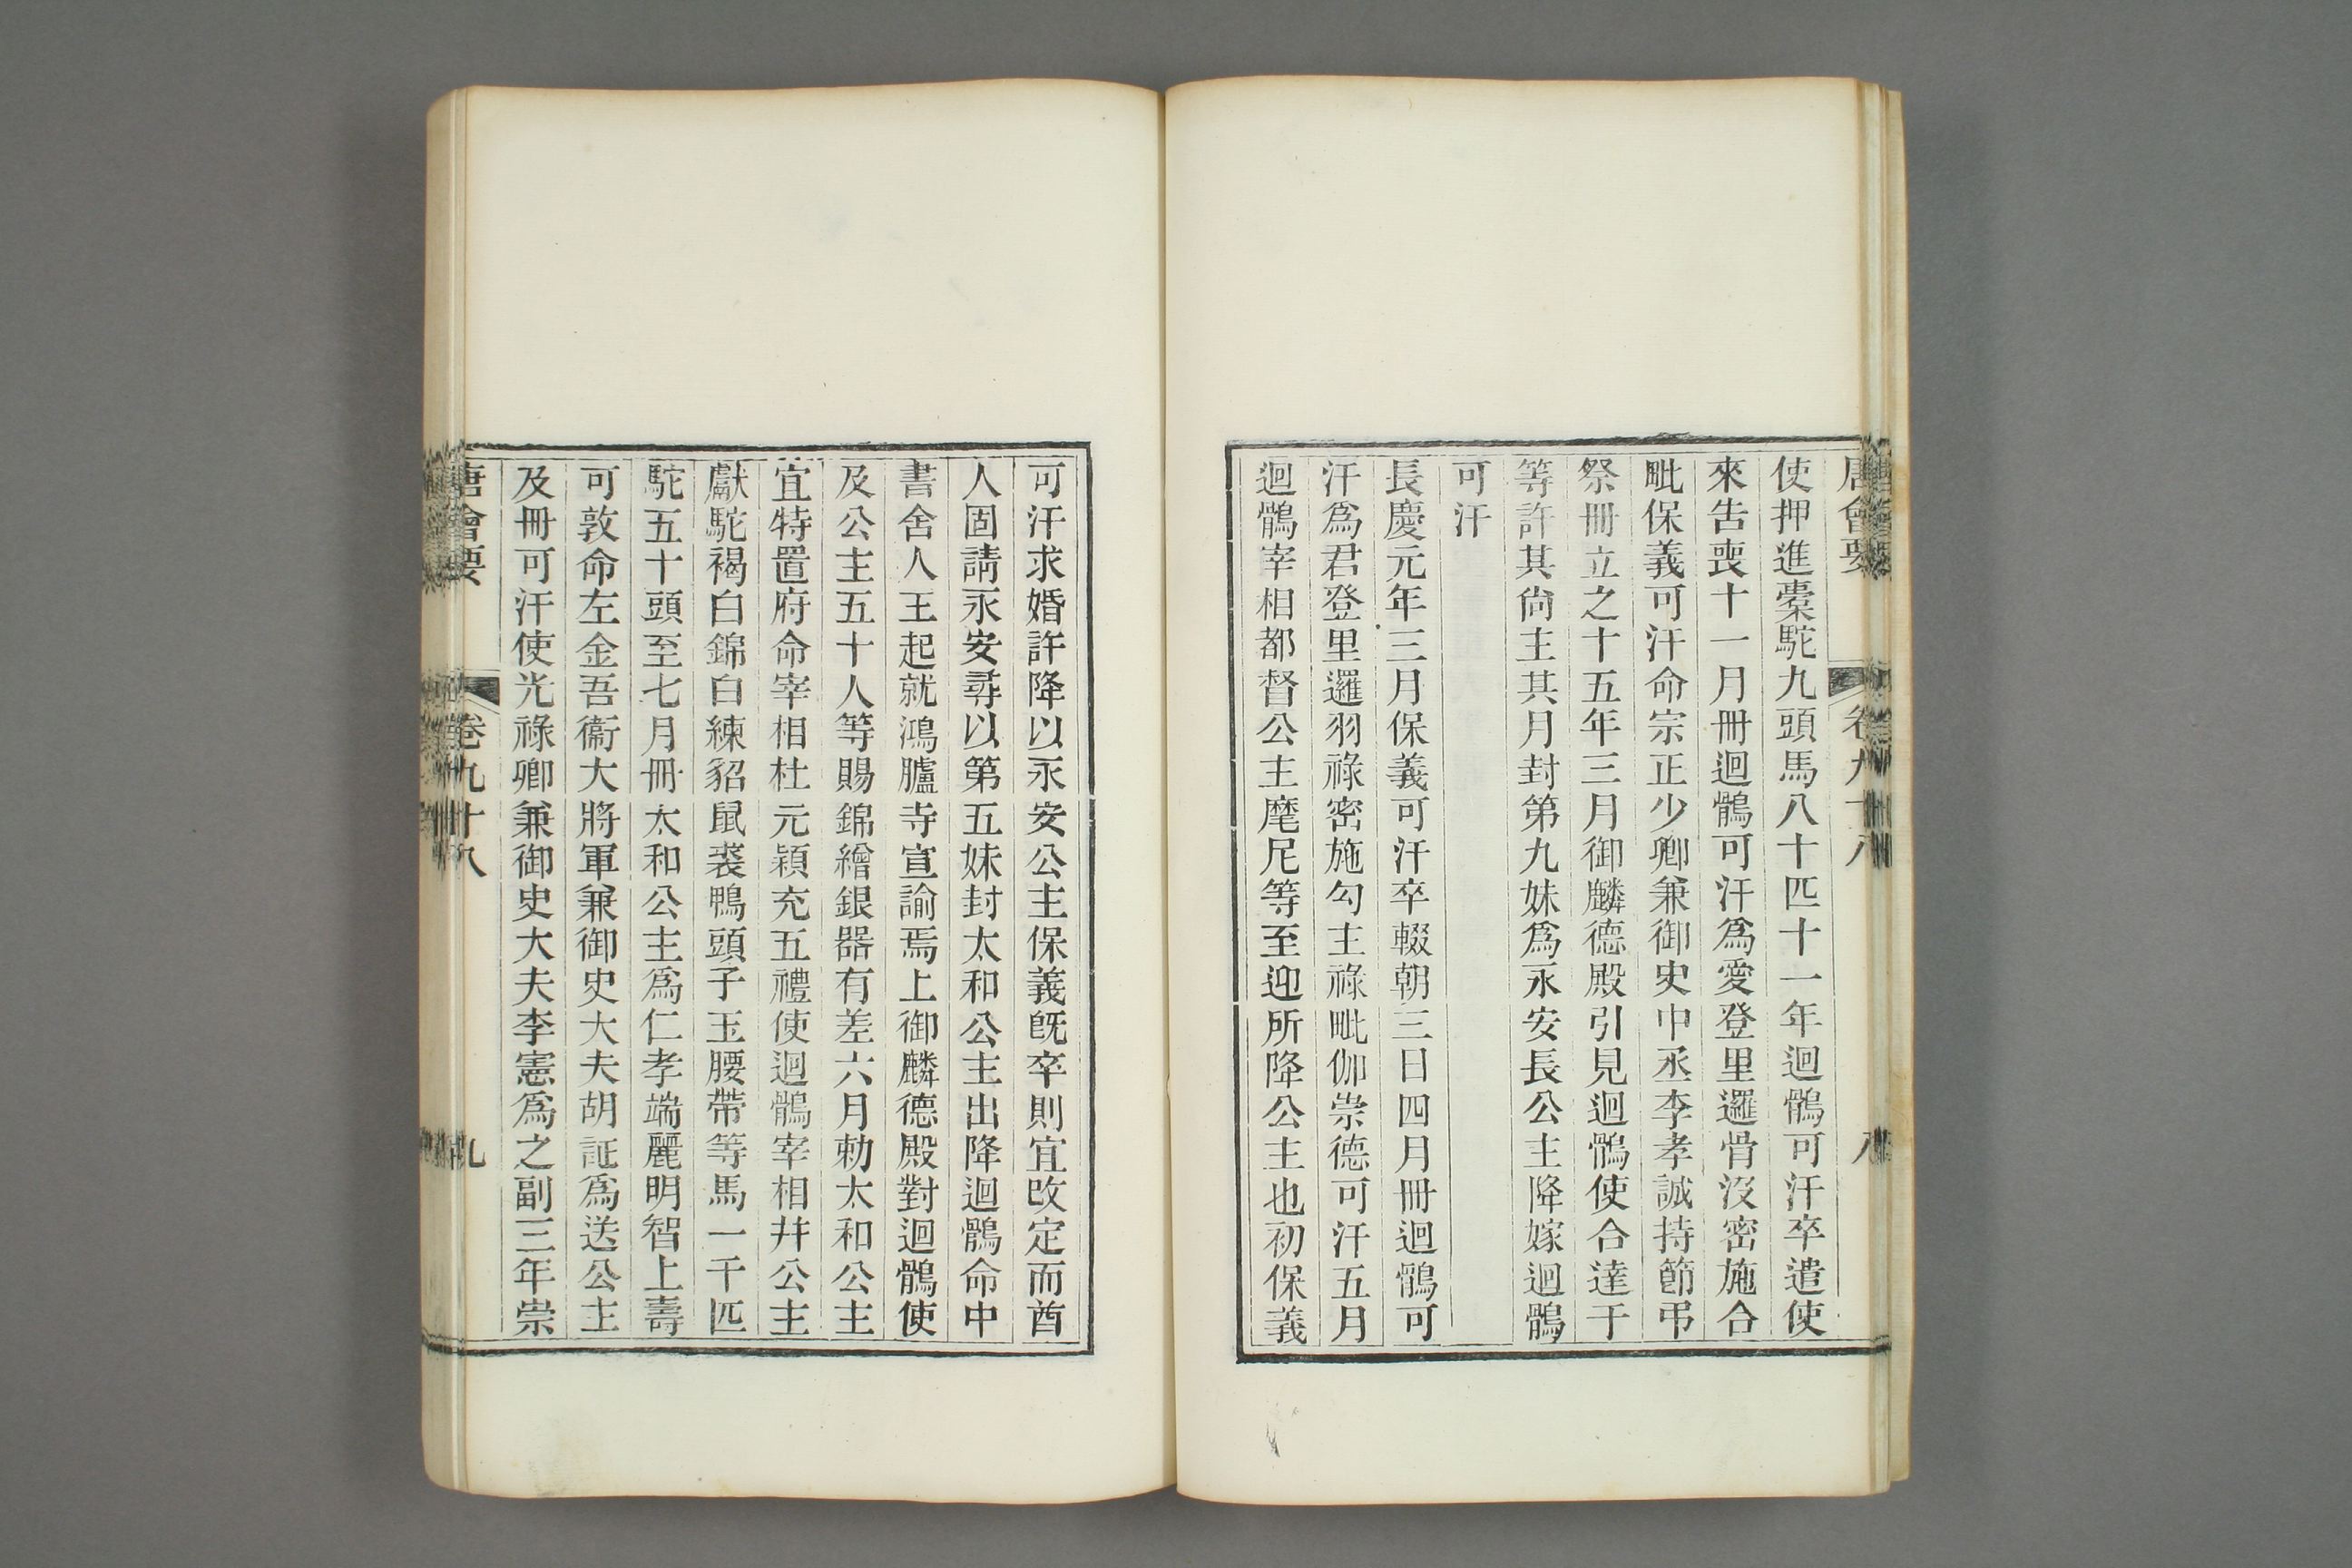 唐會要 卷九十八 八
使押進橐駝九頭馬八十匹十一年迴鶻可汗卒遣使
來告喪十一月冊迴鶻可汗爲愛登里邏骨沒密施合
毗保義可汗命宗正少卿兼御史中丞李孝誠持節弔
祭冊立之十五年三月御麟德殿引見迴鶻使合達干
等許其尙主其月封第九妹爲永安長公主降嫁迴鶻
可汗
長慶元年三月保義可汗卒輟朝三日四月冊迴鶻可
汗爲君登里邏羽祿密施勾主祿毗伽崇德可汗五月
迴鶻宰相都督公主麾尼等至迎所降公主也初保義
可汗求婚許降以永安公主保義旣卒則宜改定而酋
人固請永安尋以第五妹封太和公主出降迴鶻命中
書舍人王起就鴻臚寺宣諭焉上御麟德殿對迴鶻使
及公主五十人等賜錦繒銀器有差六月勅太和公主
宜特置府命宰相杜元穎充五禮使迴鶻宰相幷公主
獻駝褐白錦白練貂鼠裘鴨頭子玉腰帶等馬一千匹
駝五十頭至七月冊太和公主爲仁孝端麗明智上壽
可敦命左金吾衞大將軍兼御史大夫胡証爲送公主
及冊可汗使光祿卿兼御史大夫李憲爲之副三年崇
唐會要 卷九十八 九